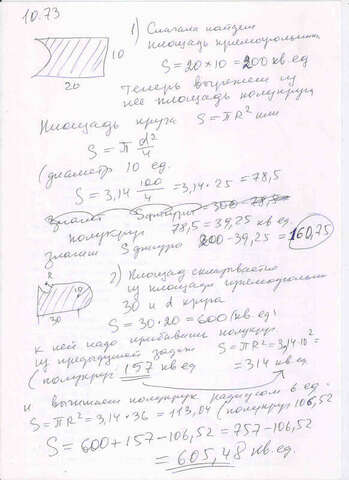 10.73
1) Сначала найдем
площадь прямоугольника
10
20
S = 20 × 10 = 200 кв. ед
Теперь вычтем из
нее площадь полукруга
Площадь круга S = πR² или
S = π d²/4
(диаметр 10 ед.
S = 3,14 100/4 = 3,14 · 25 = 78,5
полукруг 78,5 = 39,25 кв ед.
значит S фигуры 200 - 39,25 = 160,75
2) Площадь складывается
из площади прямоугольника
30 и d круга
30
S = 30 · 20 = 600 (кв. ед.
к ней надо прибавить полукруг
из предыдущей задачи S = πR² = 3,14 · 10² =
(полукруг 157 кв ед = 314 кв ед
и вычитаем полукруг радиусом 6 ед.
S = πR² = 3,14 · 36 = 113,04 (полукруг 106,52
S = 600 + 157 - 106,52 = 757 - 106,52
= 605,48 кв. ед.